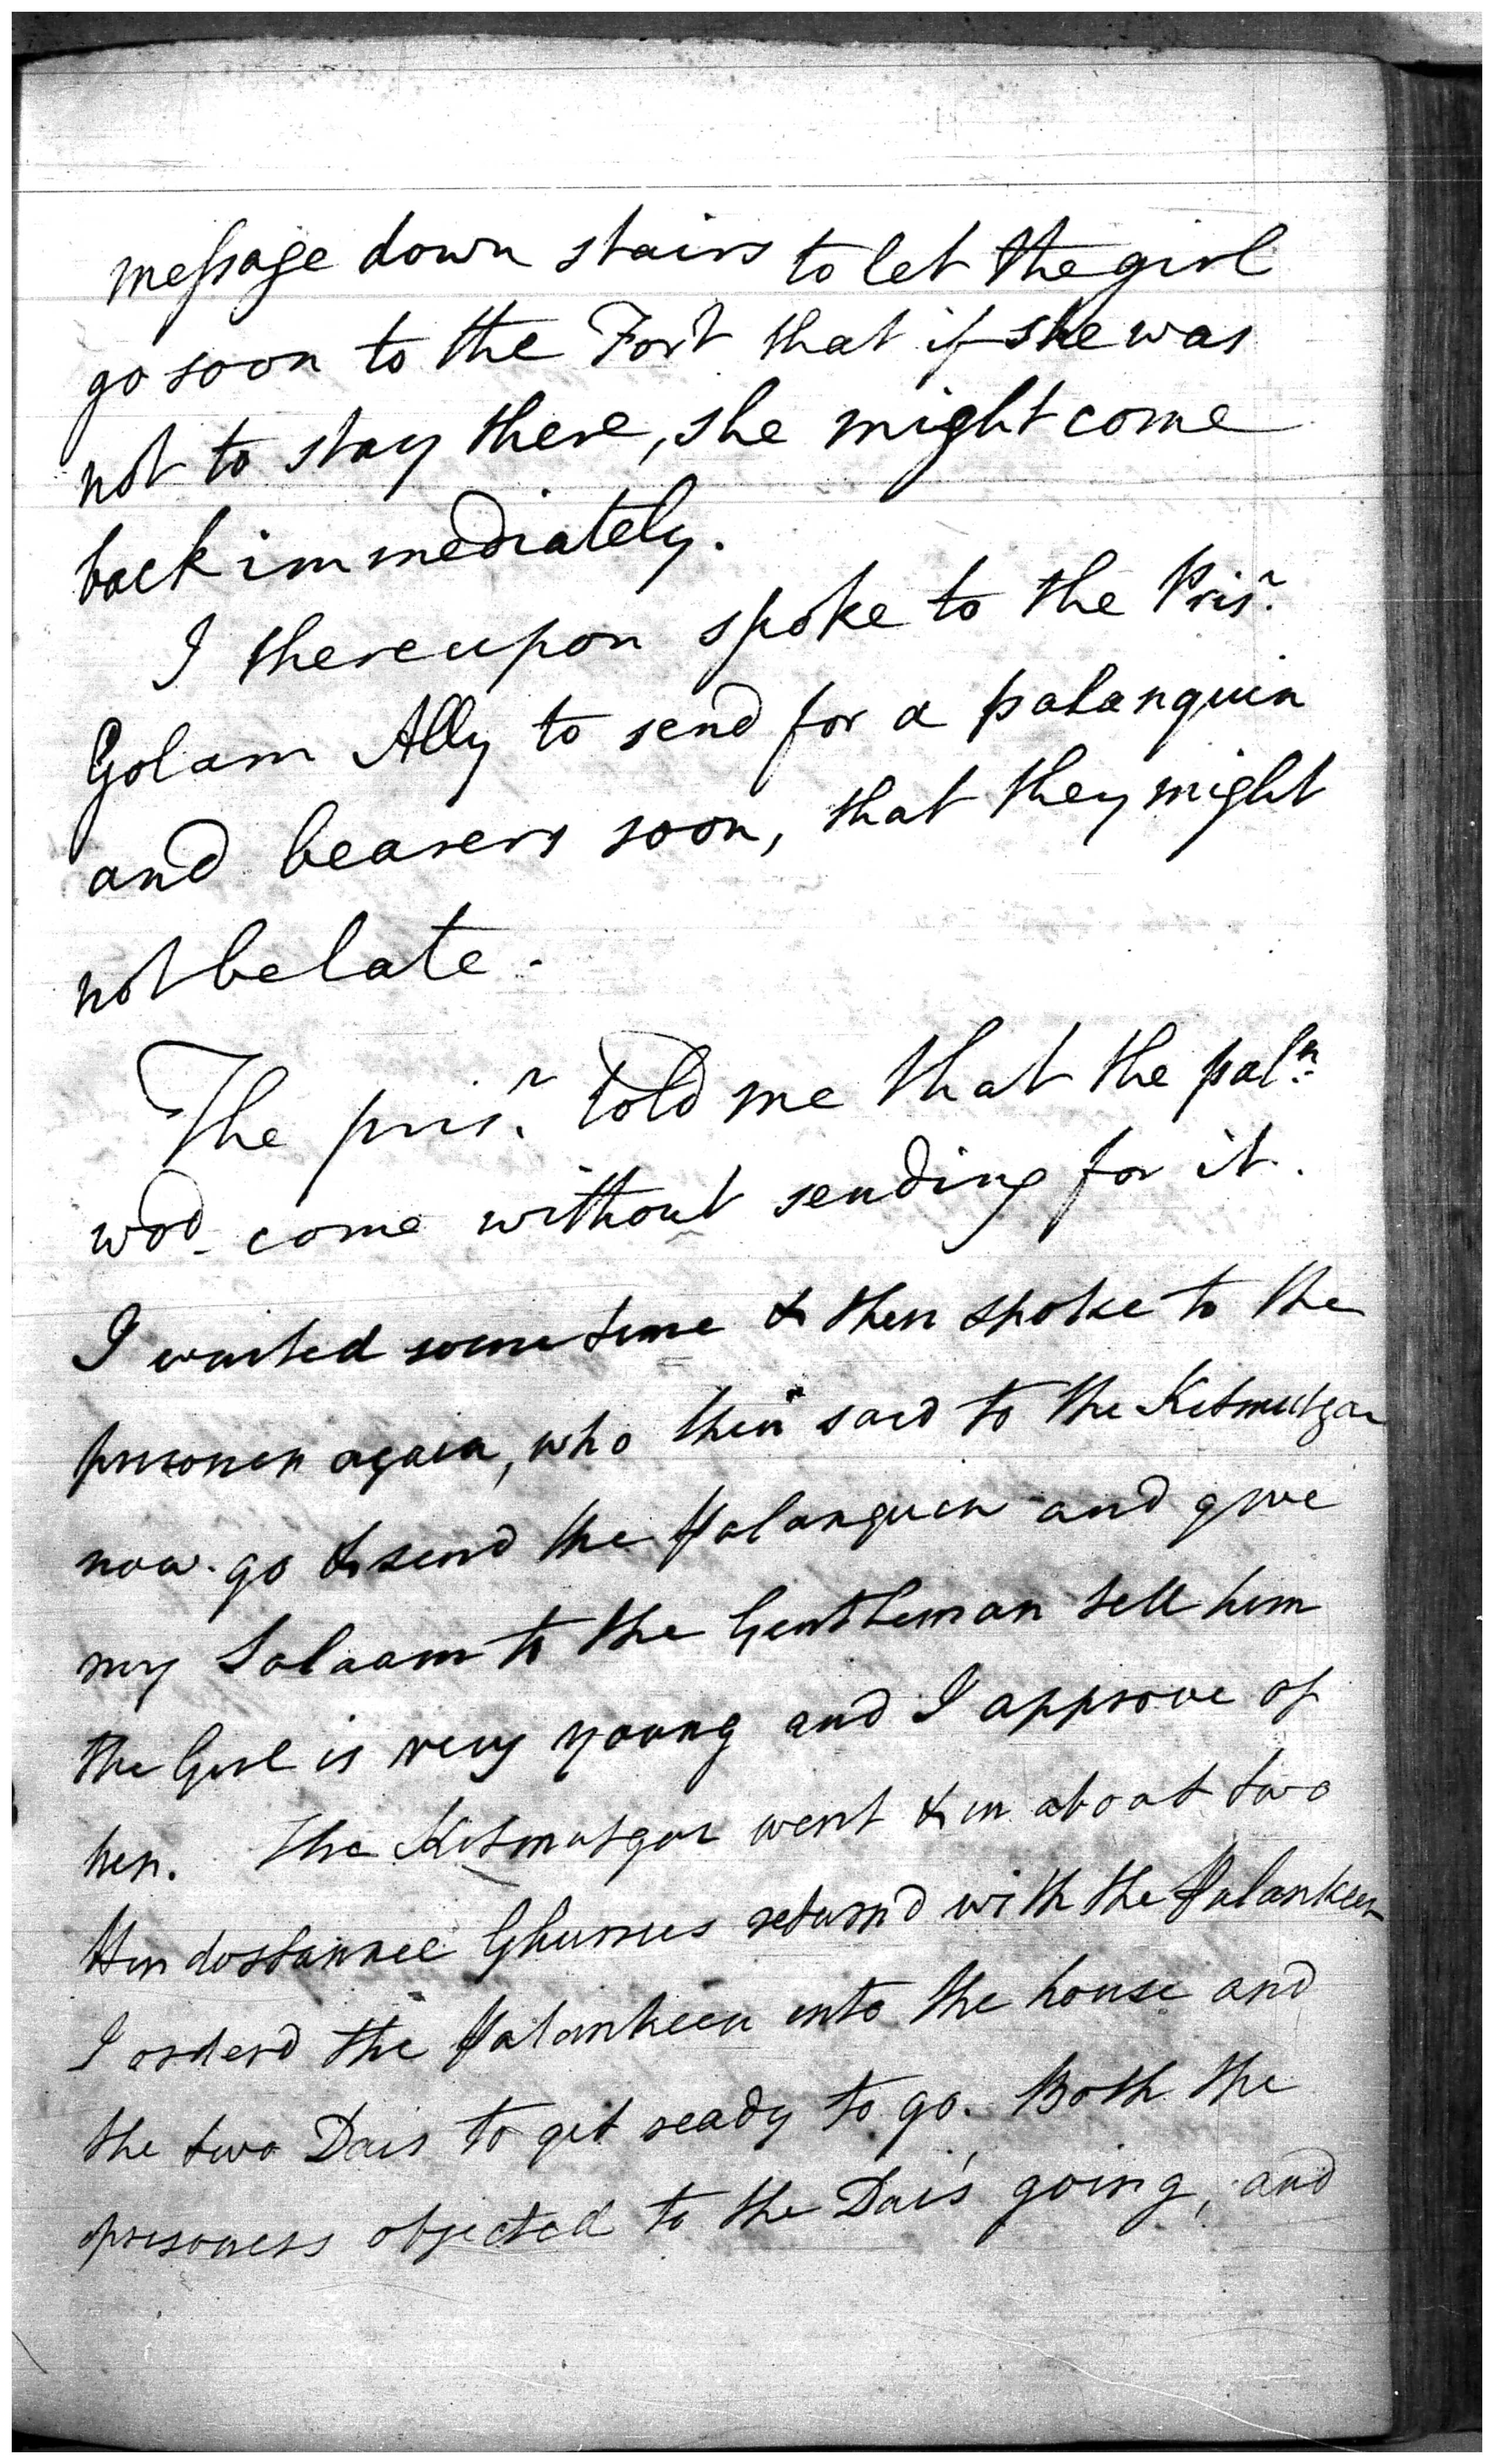 message down stairs to let the girl
go soon to the Fort that if she was
not to stay there, she might come
back immediately.
I thereupon spoke to the Prisr.
Golam Ally to send for a palanquin
and bearers soon, that they might
not be late.
The prisr. told me that the paln.
wod come without sending for it.
I waited some time & then spoke to the
prisoner again, who then said to the Kitmutgar
now go & send the Palanquin and give
my Salaam to the Gentleman tell him
the Girl is very young and I approve of
her. The Kitmutgar went & in about two
Hindostannee Ghurries returnd with the Palankeen
I orderd the Palankeen into the house and
the two Dais to get ready to go. Both the
prisoners objected to the Dais going, and